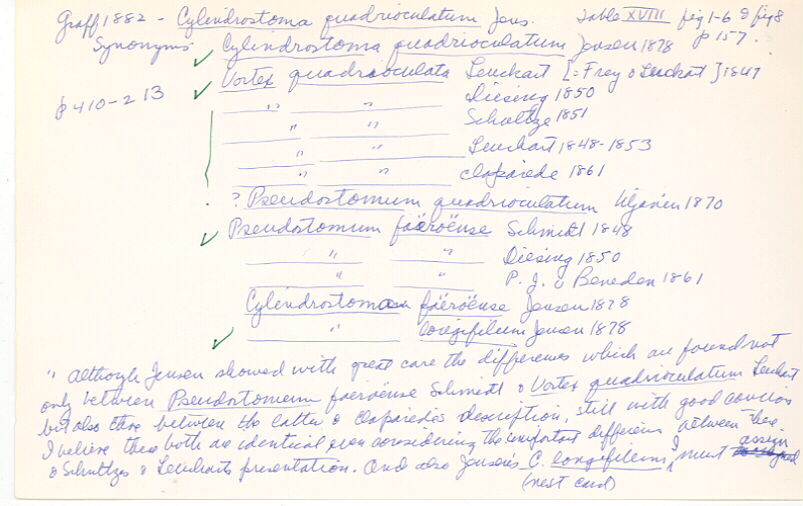 Graff 1882 - Cylindrostoma quadrioculatum Jens. Table XVIII fig 1-6 & fig 8
Synonyms ✓ Cylindrostoma quadrioculatum Jensen 1878 p 157.
p 410-2 13 ✓ Vortex quadrioculata Leuckart [= Frey & Leuckart] 1847
" " Diesing 1850
" " Schultze 1851
" " Leuckart 1848-1853
" " Claparede 1861
? Pseudostomum quadrioculatum Uljanin 1870
✓ Pseudostomum faëroënse Schmidt 1848
" " Diesing 1850
" " P. J. v Beneden 1861
Cylindrostoma faëroënse Jensen 1878
✓ " longifilum Jensen 1878
" Although Jensen showed with great care the differences which are found not
only between Pseudostomum faeroënse Schmidt & Vortex quadrioculatum Leuckart
but also those between the latter & Claparede's description, still with good
I believe these both are identical even considering the important differences between these
& Schultzes & Leuckarts presentation. And also Jensen's C. longifilum, I must assign
(next card)